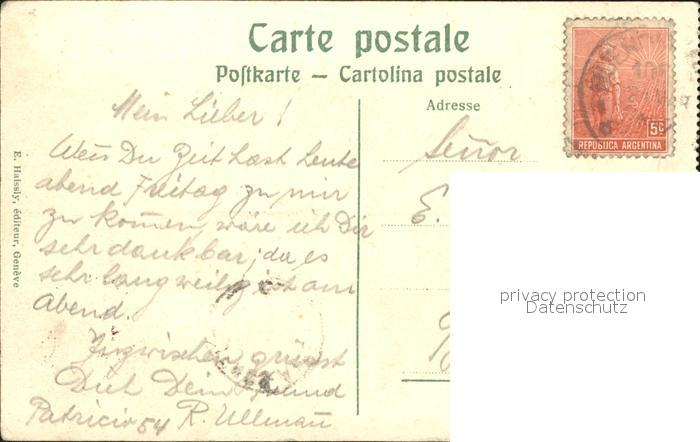 Carte postale
Postkarte — Cartolina postale
Adresse
Mein Lieber!
Wenn Du Zeit hast heute
abend Freitag zu mir
zu kommen, wäre ich Dir
sehr dankbar, da es
sehr langweilig ist am
Abend.
Inzwischen grüsst
Dich Dein Freund
Patricios 54 R. Ullmann
Señor
E.
E. Haissly, éditeur, Genève
5c
REPUBLICA ARGENTINA
privacy protection
Datenschutz